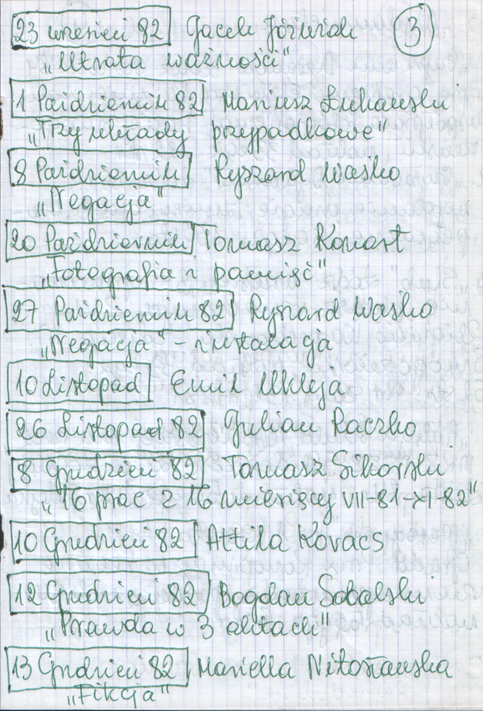 23 wrzesień 82 Jacek Jóźwiak 3
„Utrata ważności"
1 Październik 82 Mariusz Łukawski
„Trzy układy przypadkowe"
8 Październik Ryszard Waśko
„Negacja"
20 Październik Tomasz Konart
„Fotografia i pamięć"
27 Październik 82 Ryszard Waśko
„Negacja" - instalacja
10 Listopad Emil Ukleja
26 Listopad 82 Julian Raczko
8 Grudzień 82 Tomasz Sikorski
„16 prac z 16 miesięcy VII-81-XI-82"
10 Grudzień 82 Attila Kovacs
12 Grudzień 82 Bogdan Sobalski
„Prawda w 3 aktach"
13 Grudzień 82 Mariella Nitosławska
„Fikcja"